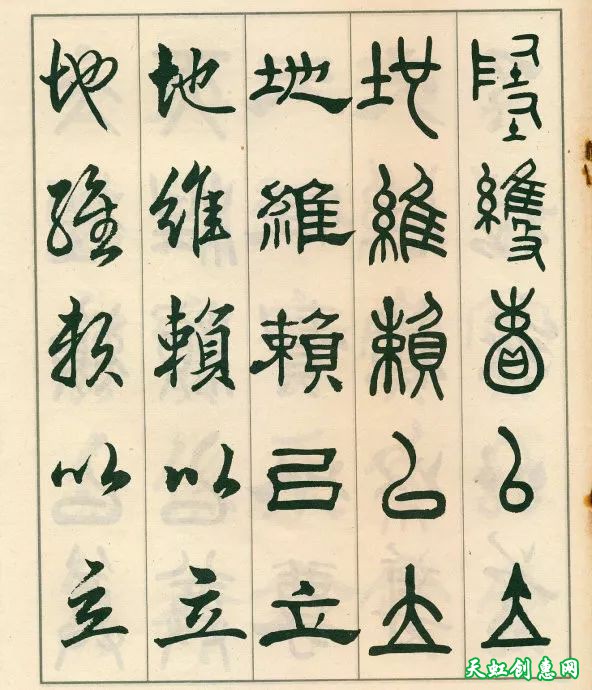 地維賴以立
地維賴以立
地維賴以立
地維賴以立
地維賴以立
天虹创惠网